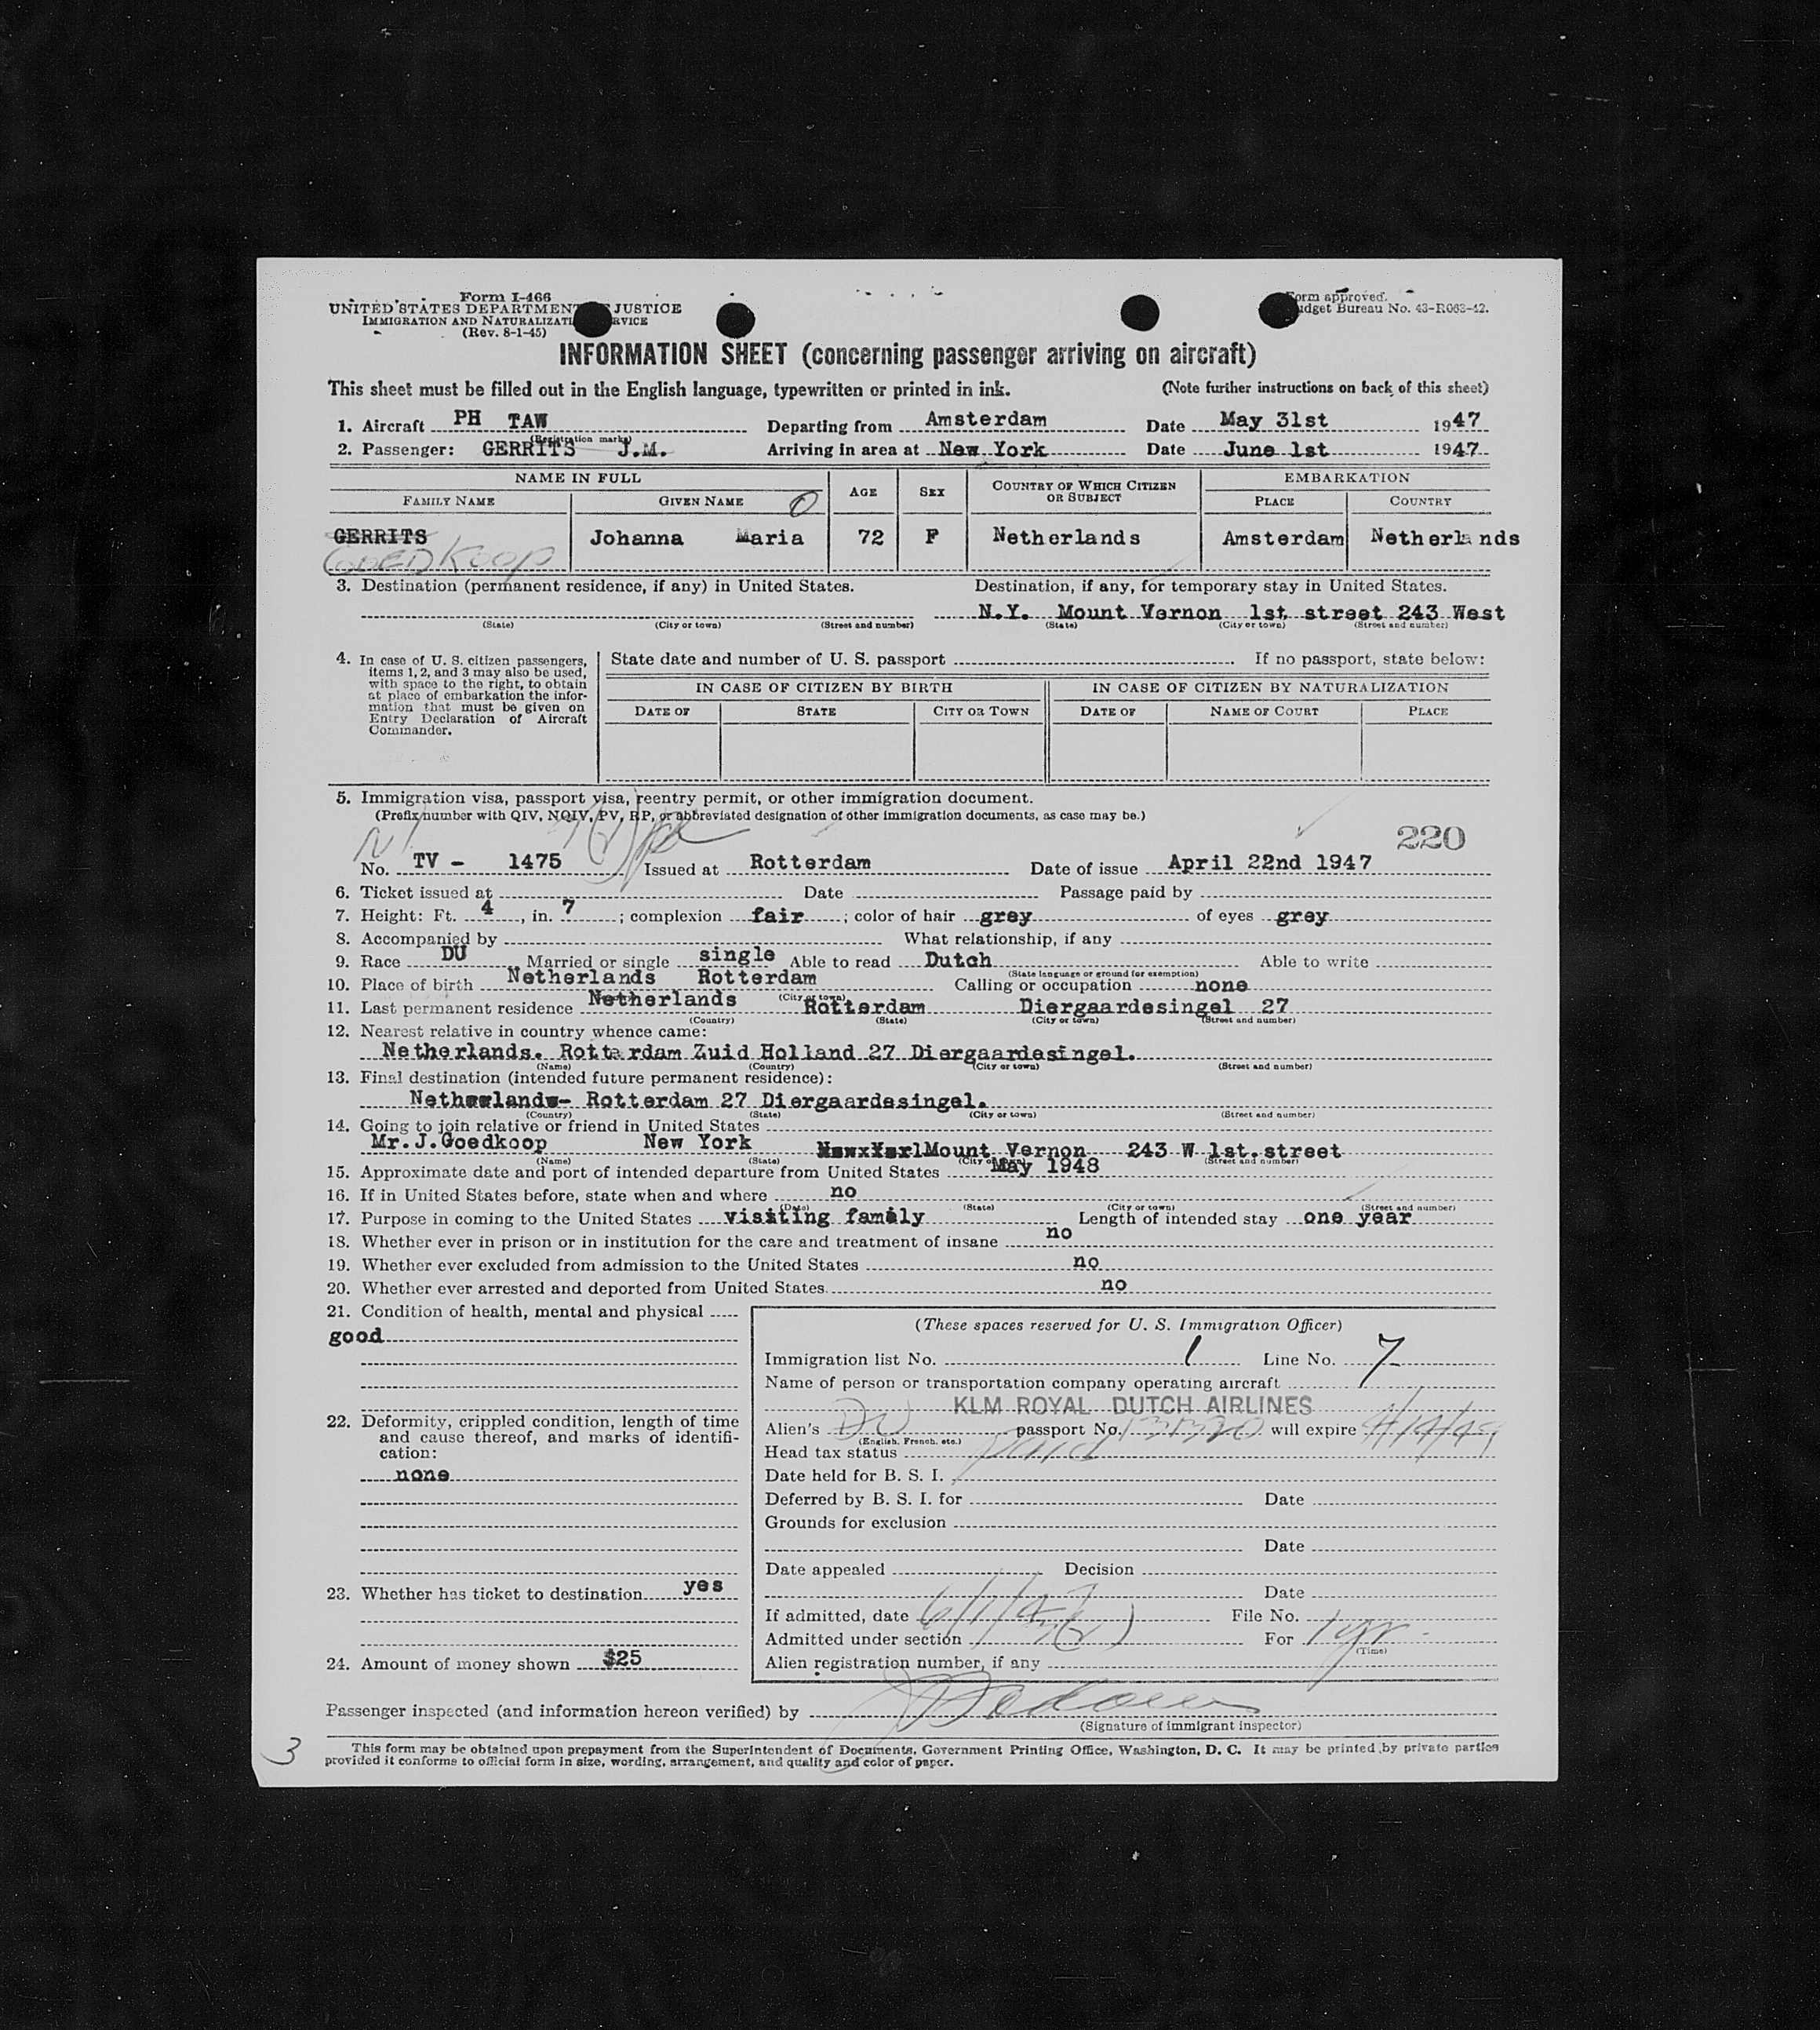 Form I-466
UNITED STATES DEPARTMENT JUSTICE
IMMIGRATION AND NATURALIZATI RVICE
(Rev. 8-1-45)
Form approved.
udget Bureau No. 43-R063-42.
INFORMATION SHEET (concerning passenger arriving on aircraft)
This sheet must be filled out in the English language, typewritten or printed in ink. (Note further instructions on back of this sheet)
1. Aircraft PH TAW Departing from Amsterdam Date May 31st 1947
(Registration marks)
2. Passenger: GERRITS J.M. Arriving in area at New York Date June 1st 1947
NAME IN FULL AGE SEX COUNTRY OF WHICH CITIZEN OR SUBJECT EMBARKATION
FAMILY NAME GIVEN NAME PLACE COUNTRY
GERRITS Johanna Maria 72 F Netherlands Amsterdam Netherlands
GOEDKOOP
3. Destination (permanent residence, if any) in United States. Destination, if any, for temporary stay in United States.
N.Y. Mount Vernon 1st. street 243 West
(State) (City or town) (Street and number) (State) (City or town) (Street and number)
4. In case of U. S. citizen passengers, items 1, 2, and 3 may also be used, with space to the right, to obtain at place of embarkation the information that must be given on Entry Declaration of Aircraft Commander.
State date and number of U. S. passport If no passport, state below:
IN CASE OF CITIZEN BY BIRTH IN CASE OF CITIZEN BY NATURALIZATION
DATE OF STATE CITY OR TOWN DATE OF NAME OF COURT PLACE
5. Immigration visa, passport visa, reentry permit, or other immigration document.
(Prefix number with QIV, NQIV, PV, RP, or abbreviated designation of other immigration documents, as case may be.)
220
No. TV - 1475 Issued at Rotterdam Date of issue April 22nd 1947
6. Ticket issued at Date Passage paid by
7. Height: Ft. 4, in. 7; complexion fair; color of hair grey of eyes grey
8. Accompanied by What relationship, if any
9. Race DU Married or single single Able to read Dutch Able to write
(State language or ground for exemption)
10. Place of birth Netherlands Rotterdam Calling or occupation none
(City or town)
11. Last permanent residence Netherlands Rotterdam Diergaardesingel 27
(Country) (State) (City or town) (Street and number)
12. Nearest relative in country whence came:
Netherlands. Rotterdam Zuid Holland 27 Diergaardesingel.
(Name) (Country) (City or town) (Street and number)
13. Final destination (intended future permanent residence):
Netherlands- Rotterdam 27 Diergaardesingel.
(Country) (State) (City or town) (Street and number)
14. Going to join relative or friend in United States
Mr.J.Goedkoop New York Mount Vernon 243 W 1st.street
(Name) (State) (City or town) (Street and number)
15. Approximate date and port of intended departure from United States May 1948
16. If in United States before, state when and where no
(Date) (State) (City or town) (Street and number)
17. Purpose in coming to the United States visiting family Length of intended stay one year
18. Whether ever in prison or in institution for the care and treatment of insane no
19. Whether ever excluded from admission to the United States no
20. Whether ever arrested and deported from United States no
21. Condition of health, mental and physical
good
22. Deformity, crippled condition, length of time and cause thereof, and marks of identification:
none
23. Whether has ticket to destination yes
24. Amount of money shown $25
(These spaces reserved for U. S. Immigration Officer)
Immigration list No. 1 Line No. 7
Name of person or transportation company operating aircraft
KLM ROYAL DUTCH AIRLINES
Alien's DU passport No. will expire
(English, French, etc.)
Head tax status paid
Date held for B. S. I.
Deferred by B. S. I. for Date
Grounds for exclusion
Date
Date appealed Decision
Date
If admitted, date 6/1/47 File No.
Admitted under section For 1 yr.
(Time)
Alien registration number, if any
Passenger inspected (and information hereon verified) by
(Signature of immigrant inspector)
3
This form may be obtained upon prepayment from the Superintendent of Documents, Government Printing Office, Washington, D. C. It may be printed by private parties
provided it conforms to official form in size, wording, arrangement, and quality and color of paper.